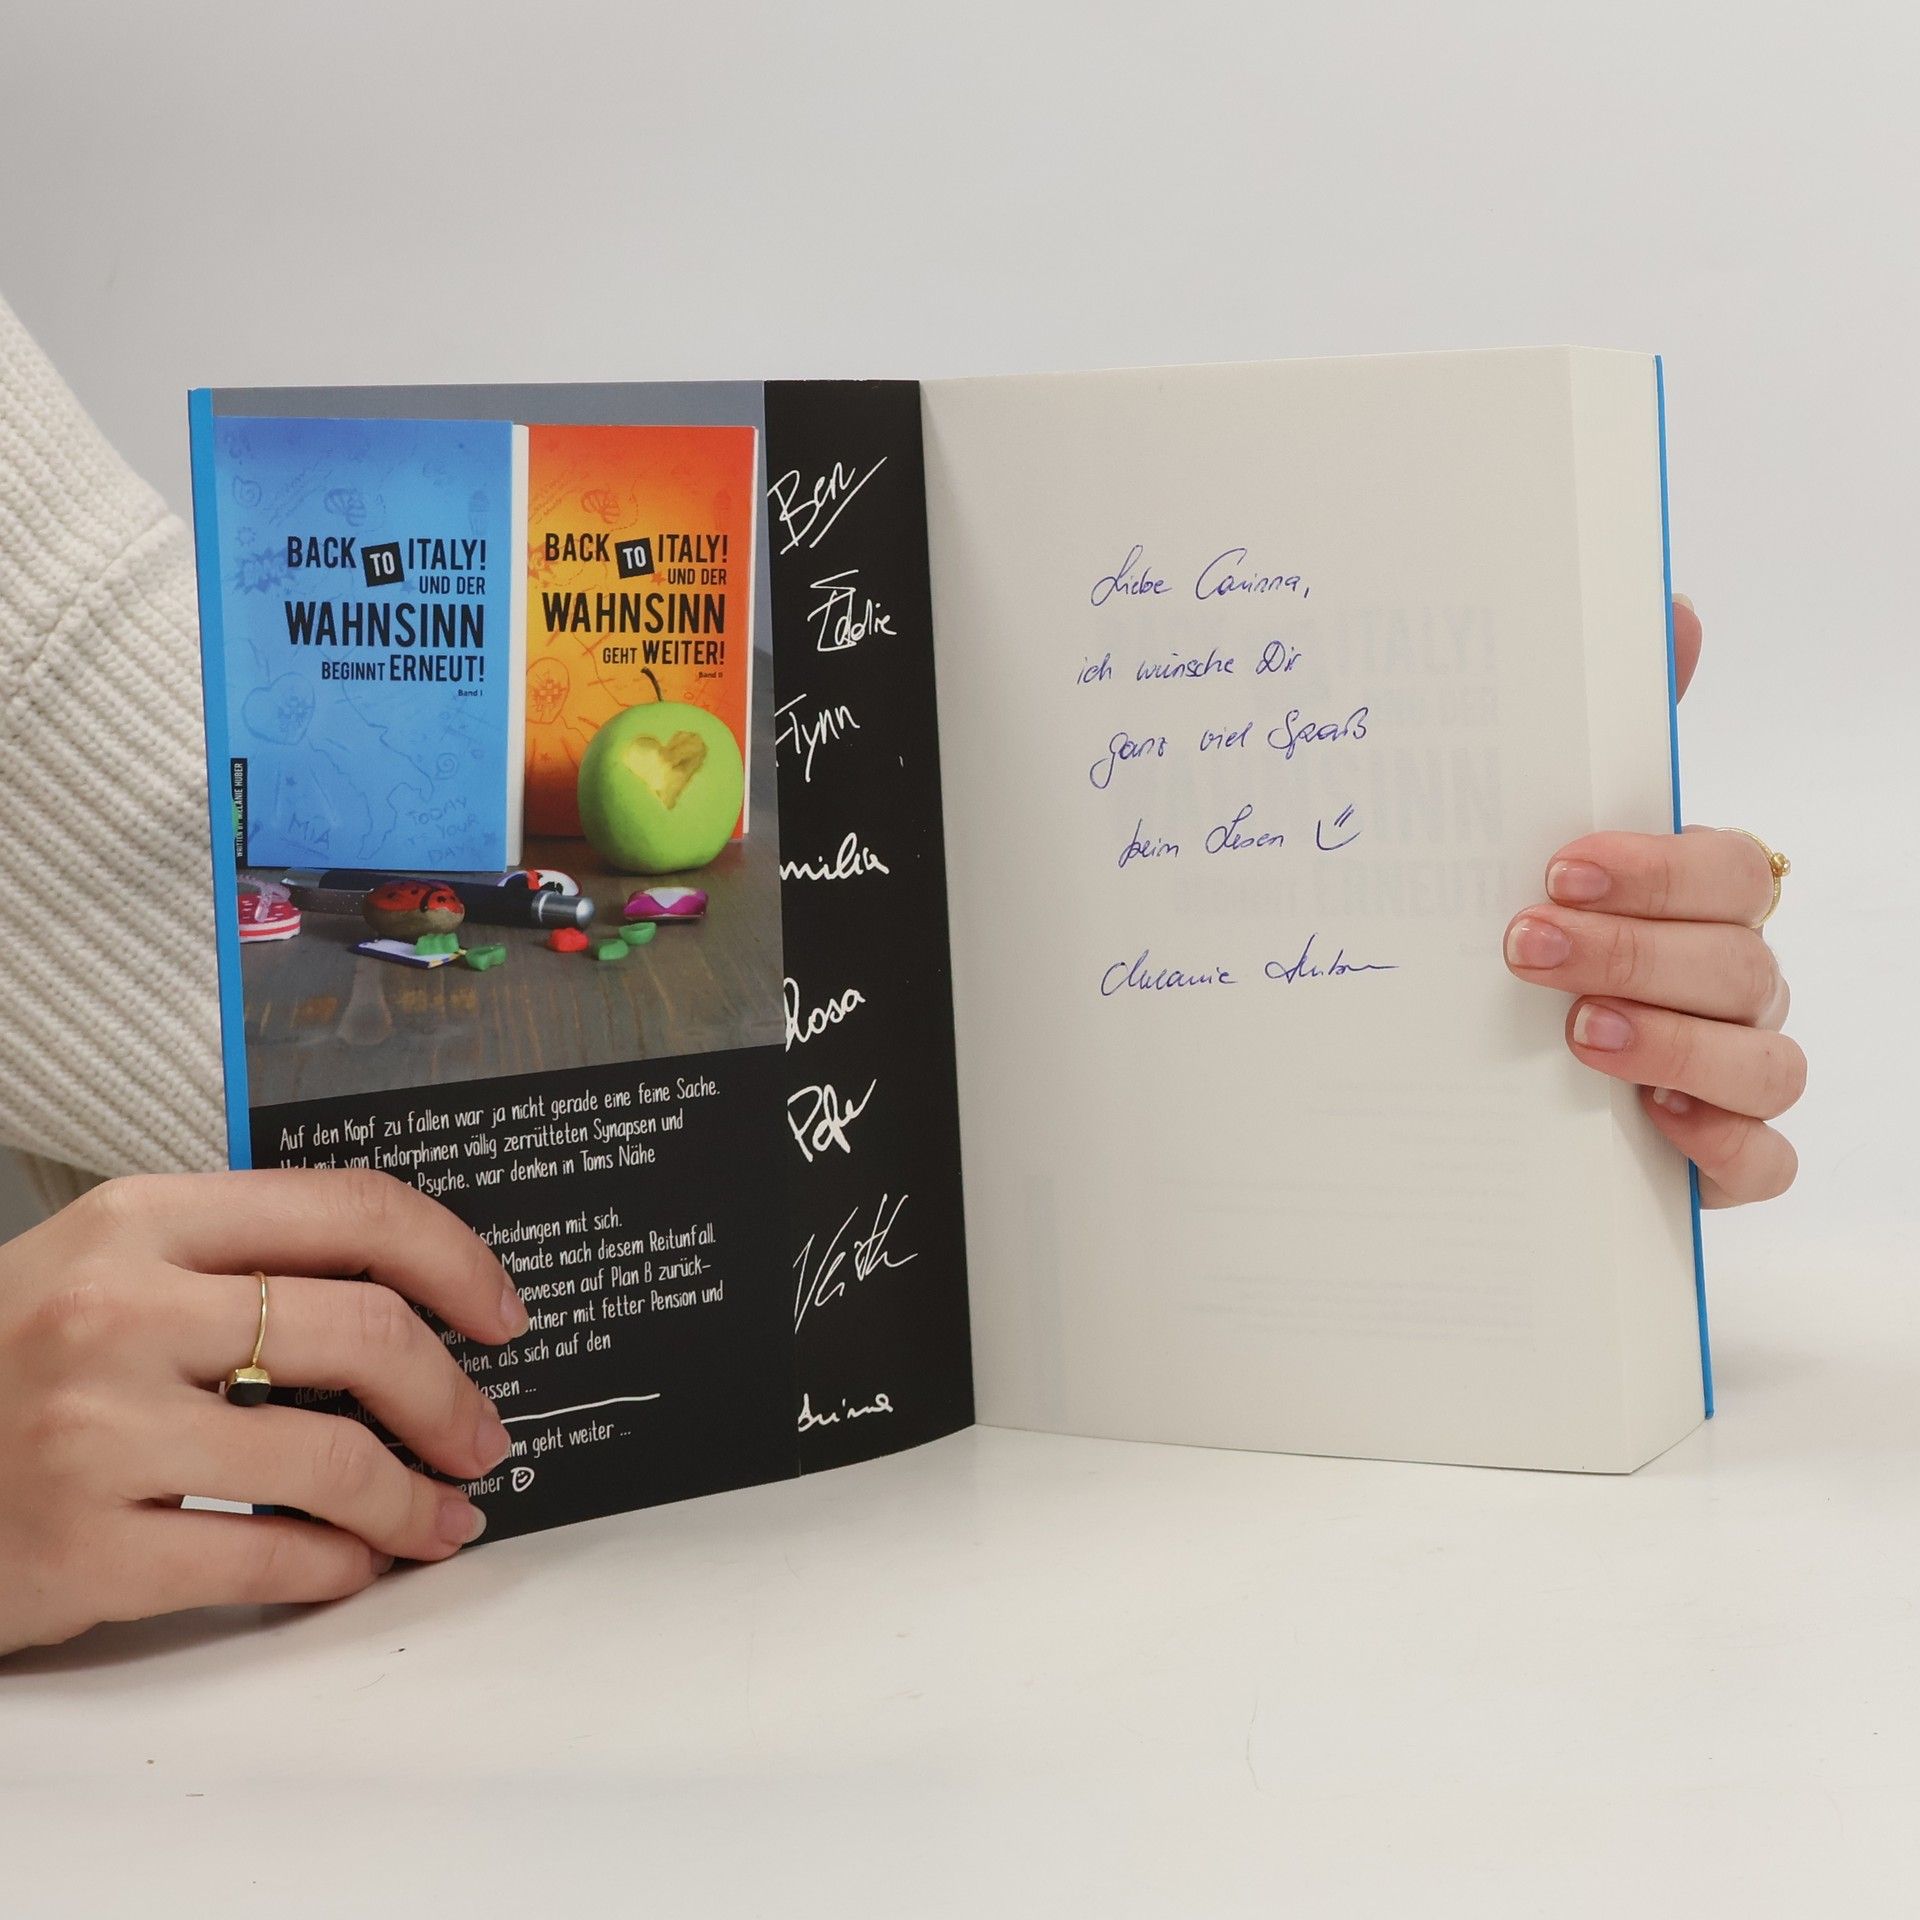 BACK TO ITALY!
UND DER
WAHNSINN
BEGINNT ERNEUT!
Band I
WRITTEN BY MELANIE HUBER
MIA
TODAY
IS YOUR
DAY
BACK TO ITALY!
UND DER
WAHNSINN
GEHT WEITER!
Band II
Auf den Kopf zu fallen war ja nicht gerade eine feine Sache.
Und mit von Endorphinen völlig zerrütteten Synapsen und
Psyche, war denken in Toms Nähe
scheidungen mit sich.
Monate nach diesem Reitunfall.
gewesen auf Plan B zurück-
ntner mit fetter Pension und
chen, als sich auf den
lassen ...
nn geht weiter ...
ember
Ben
Eddie
Flynn
milia
Rosa
Veith
Liebe Corinna,
ich wünsche Dir
ganz viel Spaß
beim Lesen
Melanie Huber